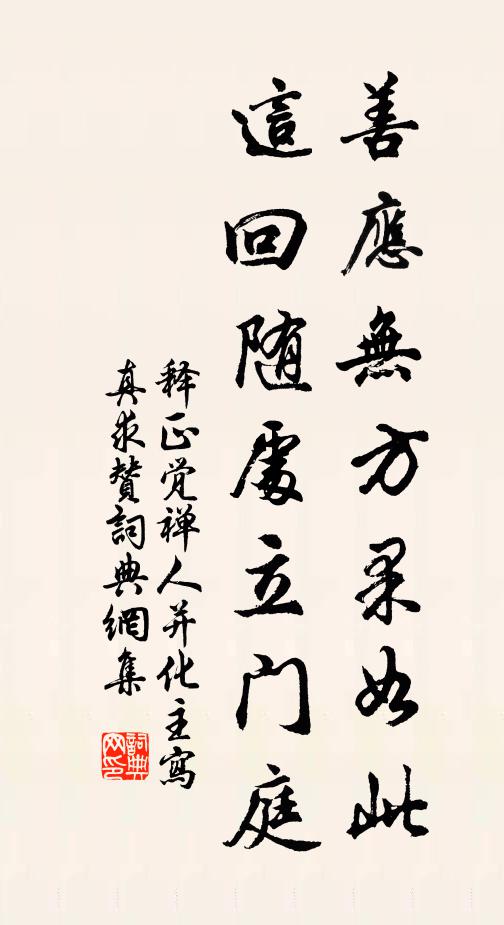 善應無方果如此
這回随處立門庭
释正觉禅人并化主寫
真求贊詞典網集
詞典網印